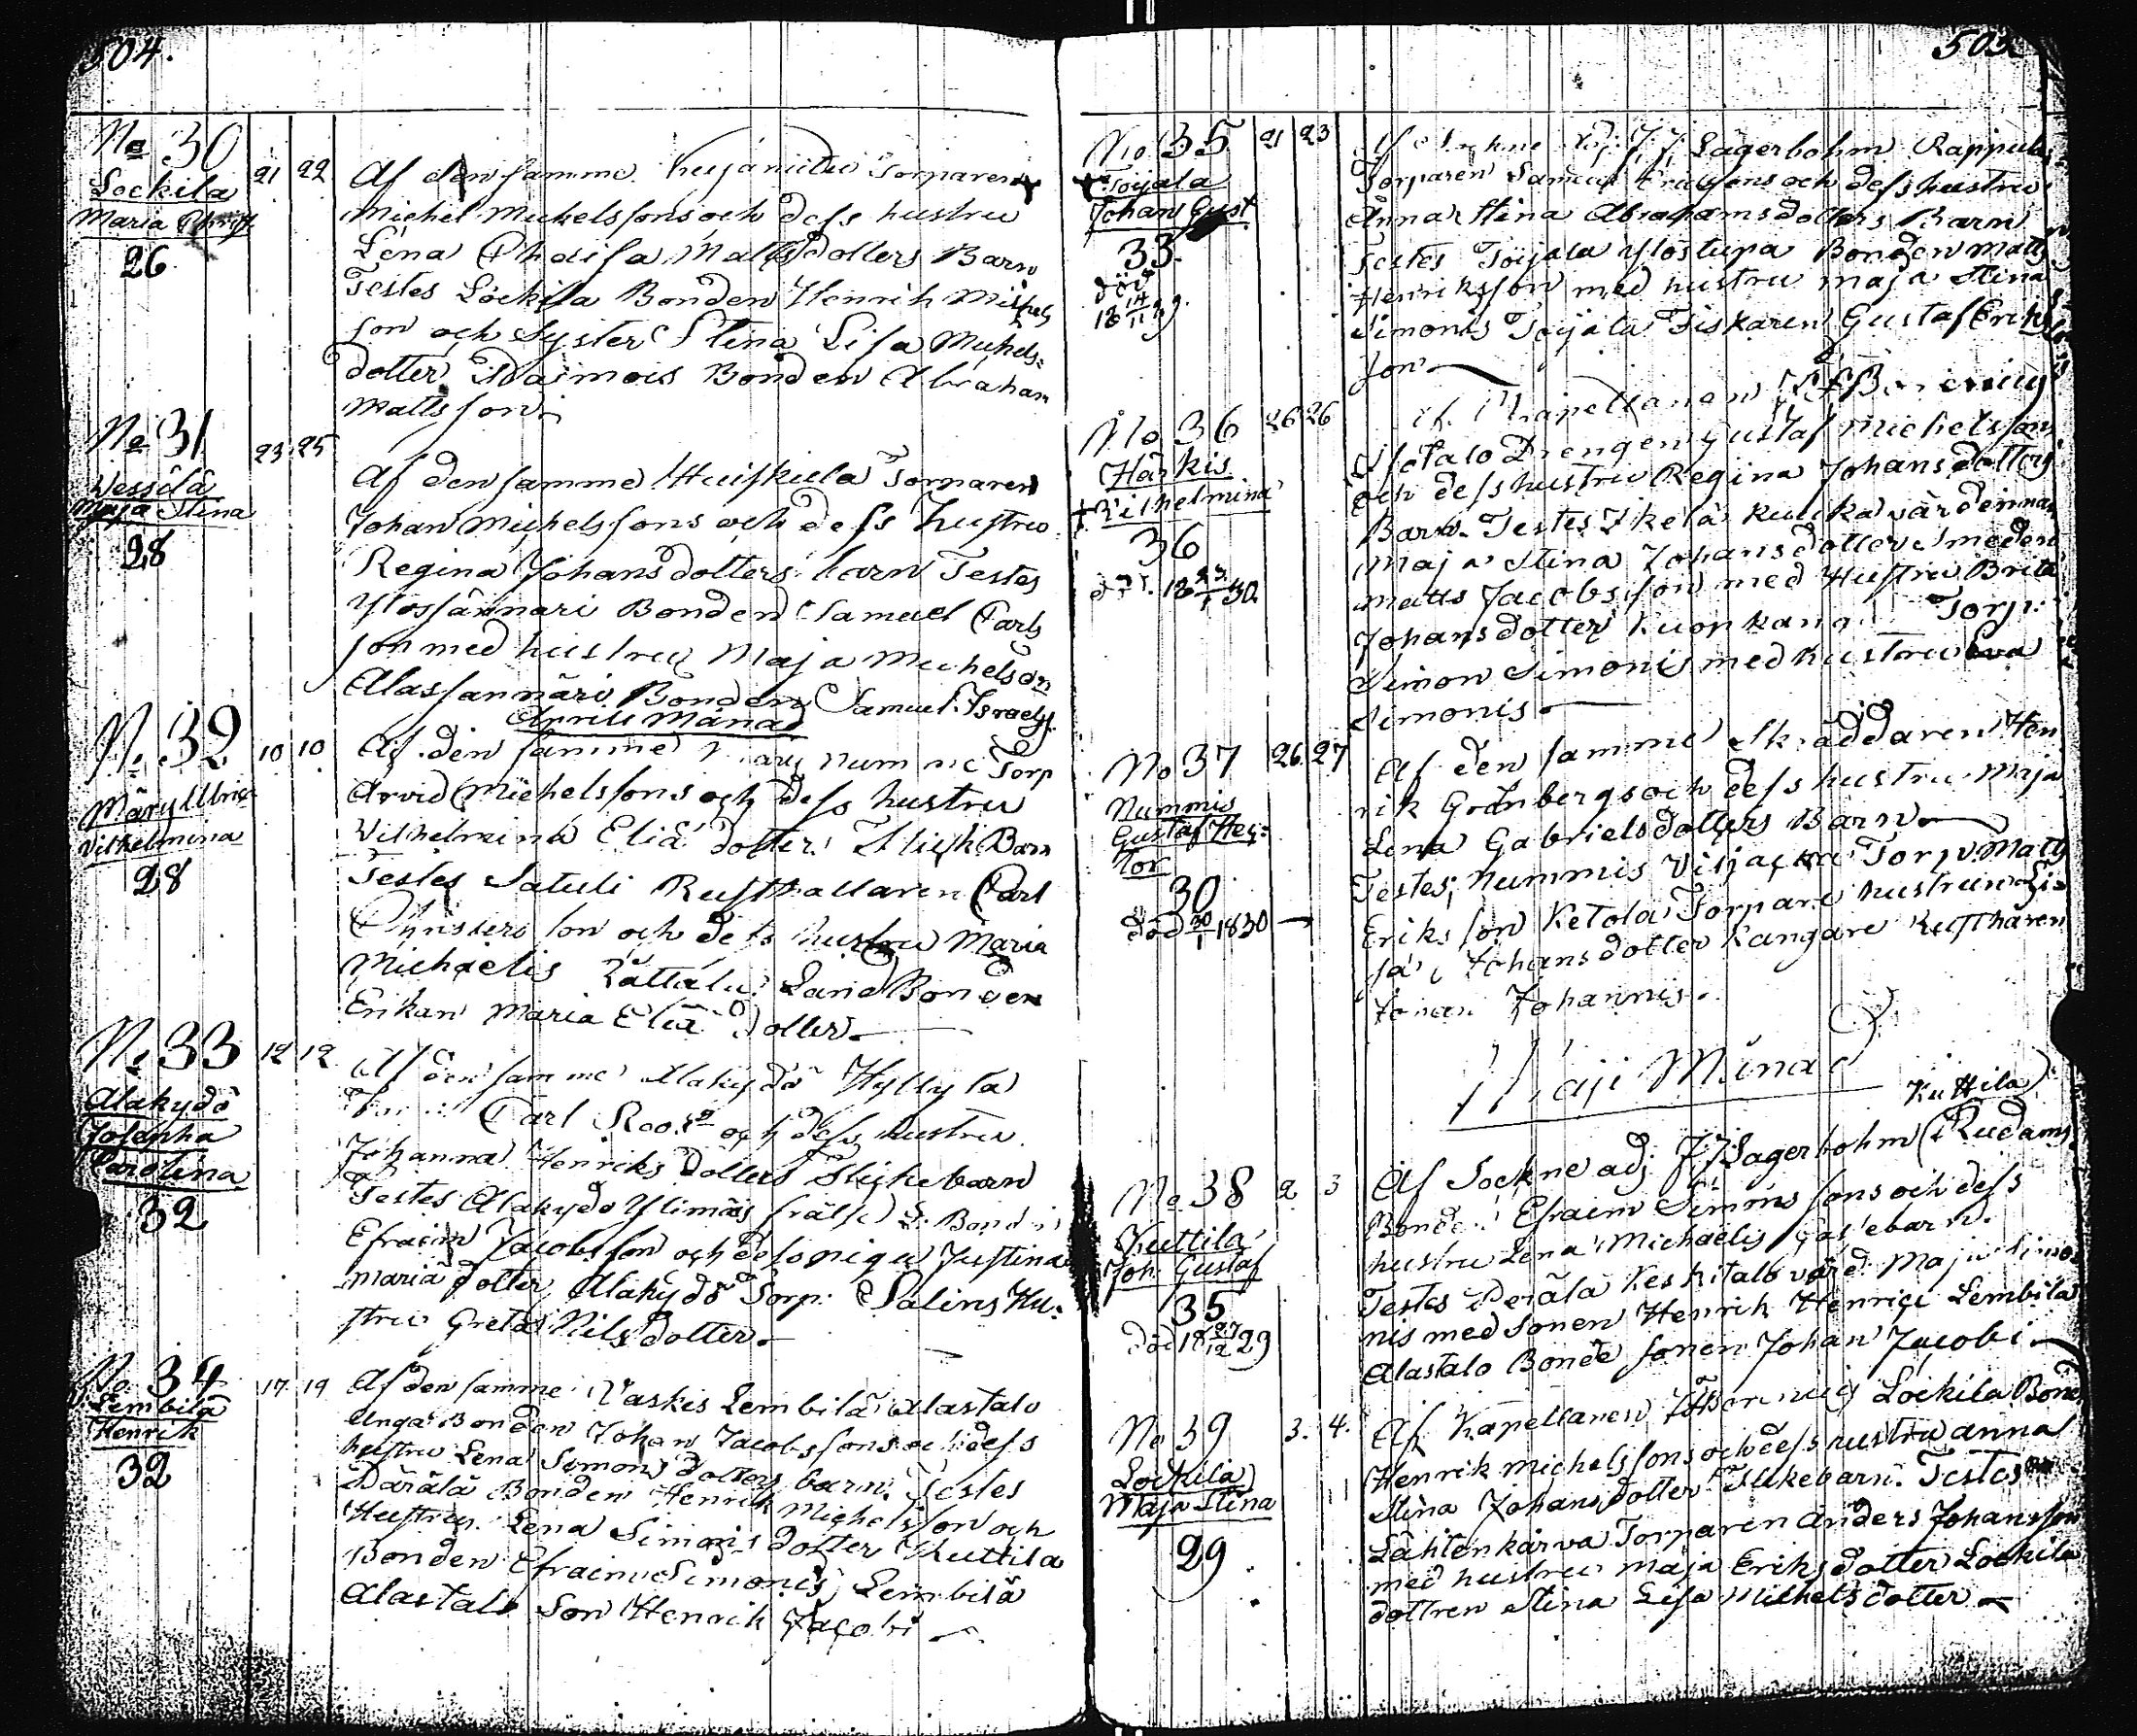 504.
No 30
Lockila
Maria Christ
26
21 22
Af den samme Torparen
Michel Michelssons och dess hustru
Lena Chaisa Mattsdotters Barn
Testes Lockila Bonden Henrik Michels
son och Syster Stina Lisa Michels=
dotter Bonden Abraham
Mattsson
No 31
Wessilä
Maja Stina
28
23 25
Af den samme Huiskula Torparen
Johan Michelssons och dess hustru
Regina Johansdotters barn Testes
Ylössännäri Bonden Samuel Carls
son med hustru Maja Michelsdn
Alassännäri Bonden Samuel Israelss.
Aprils Månad
No 32
Märy Ulrica
Vilhelmina
28
10 10
Af den samme Märy Torp
Arvid Michelssons och dess hustru
Vilhelmina Eliä dotter Barn
Testes Satuli Rusthållaren Carl
Christersson och dess hustru Maria
Michaelis Land Bonden
Enkan Maria Eliä Dotter.
No 33
Alakydö
Josepha
Carolina
32
12 12
Af den samme Alakydö Hyllylä
Carl Roos och dess hustru
Johanna Henriks Dotters Flickebarn
Testes Alakydö Ylimäs frälse L. Bonden
Efraim Jacobsson och dess piga Justina
Mariä dotter, Alakydö Torp. Salins Hu=
stru Greta Nilsdotter.
No 34
Lembilä
Henrik
32
17 19
Af den samme Vaskis Lembilä Alastalo
Unga Bonden Johan Jacobssons och dess
hustru Lena Simonsdotters barn. Testes
Därälä Bonden Henrik Michelsson och
Hustrun Lena Simonisdotter Kuttila
Bonden Efraim Simonis, Lembilä
Alastalo Son Henrik Jacobi
505
No 35
Toijala
Johan Gust
33.
död
18 14/11 29.
21 23
Af Sockne Adj. J.J. Lagerbohm Rappula
Torparen Samuel Ericssons och dess hustru
Anna Stina Abrahamsdotters Barn
Testes Toijala Ylöstupa Bonden Matts
Henriksson med hustru Maja Stina
Simonis Toijala Fiskaren Gustaf Eriks
son
No 36
Härkis
Vilhelmina
36
död. 18 23/1 30.
26 26
Af Chapellanen
Isotalo Drengen Gustaf Michelssons
och dess hustru Regina Johansdotters
Barn. Testes Ikela värdinnan
Maja Stina Johansdotter Smeden
Matts Jacobsson med Hustru Brita
Johansdotter Torp.
Simon Simonis med hustru Eva
Simonis
No 37
Nummis
Gustaf Hec=
tor
30
död 20/1 1830
26 27
Af den samme Skräddaren Hen
rik Grönbergs och dess hustru Maja
Lena Gabrielsdotters Barn
Testes; Nummis Torp. Matts
Eriksson Ketola Torpare hustrun Li=
sa Johansdotter Kangare Rusthåren
Johan Johannis.
Maji Månad
Kuttila
No 38
Kuttila
Joh: Gustaf
35
Död 18 27/12 29
2 3
Af Sockne adj J.J. Lagerbohm Rudams
Bonden Efraim Simonssons och dess
hustru Lena Michaelis Gossebarn.
Testes Perälä Keskitalo värd. Maja Simo
nis med Sonen Henrik Henrici Lembilä
Alastalo Bonde sonen Johan Jacobi
No 39
Lockila
Maja Stina
29
3. 4.
Af Kapellanen Lockila Bond.
Henrik Michelssons och dess hustru Anna
Stina Johansdotter Flickebarn. Testes
Lähtenkärva Torparen Anders Johansson
med hustru Maja Eriksdotter Lockila
dottren Stina Lisa Michelsdotter